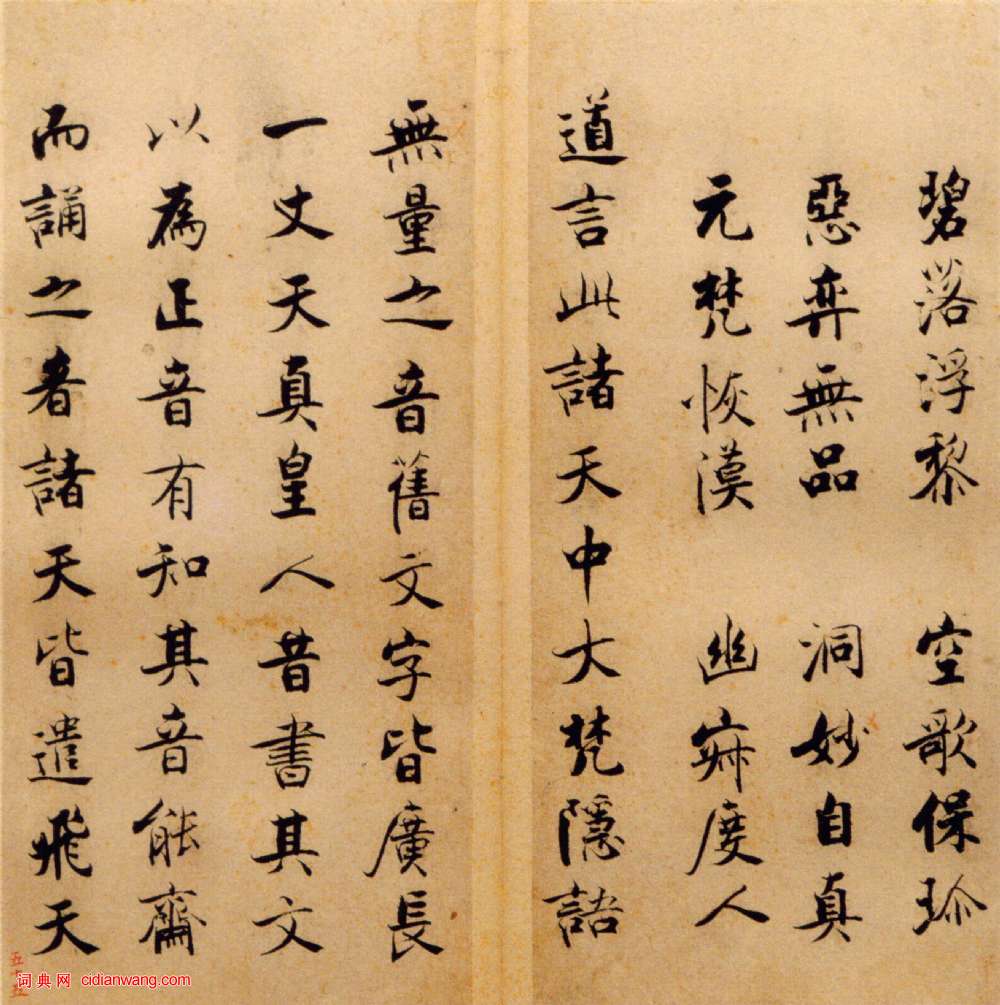 碧落浮黎 空歌保珎
惡弈無品 洞妙自真
元梵恢漠 幽寂度人
道言此諸天中大梵隱語
無量之音舊文字皆廣長
一丈天真皇人昔書其文
以為正音有知其音能齋
而誦之者諸天皆遣飛天
五十五
词典网 cidianwang.com